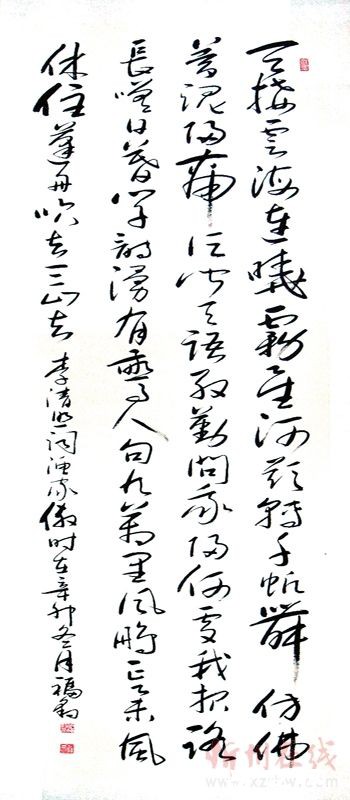 天接雲濤連曉霧星河欲轉千帆舞仿佛
夢魂歸帝所聞天語殷勤問我歸何處我报路
長嗟日暮學詩漫有驚人句九萬里風鵬正舉風
休住蓬舟吹去三山去 李清照词渔家傲時在辛卯冬月福
忻州在线